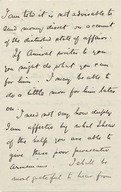 I am told it is not advisable to
send money direct on account
of the disturbed state of affairs.
If Amirval writes to you
you might do what you can
for him. I may be able to
do a little more for him later
on.
I need not say how deeply
I am affected by what I hear
of the help you are able to
give these poor persecuted
Armenians. I shall be
most grateful to hear from